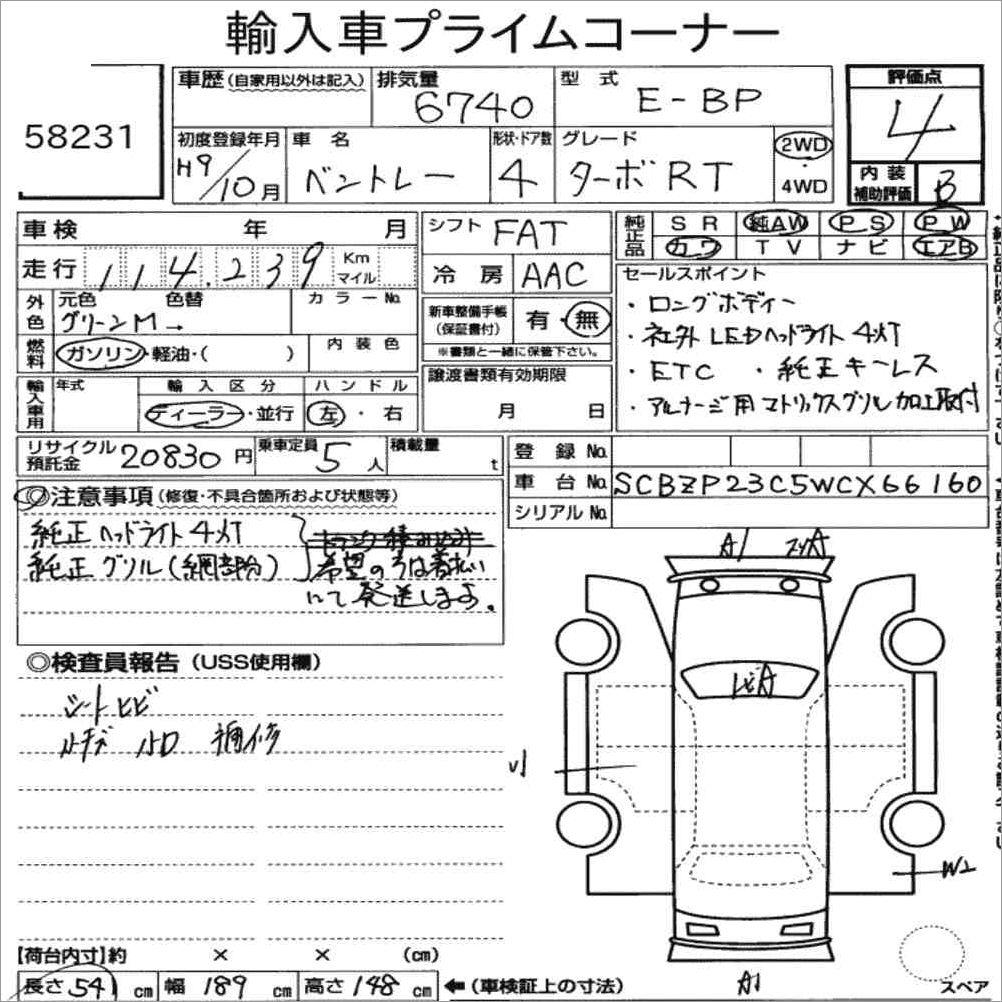 輸入車プライムコーナー
58231
車歴(自家用以外は記入) 排気量 6740 型式 E-BP
評価点 4
内装補助評価 B
初度登録年月 H9/10月 車名 ベントレー 形状・ドア数 4 グレード ターボRT 2WD・4WD
車検 年 月
走行 114,239 Km マイル
外色 元色 グリーンM→ 色替 カラーNo.
燃料 ガソリン・軽油・( ) 内装色
輸入車用 年式 輸入区分 ディーラー・並行 ハンドル 左・右
シフト FAT
冷房 AAC
新車整備手帳(保証書付) 有・無
※書類と一緒に保管下さい。
譲渡書類有効期限
月 日
純正品 SR 純AW PS PW
カワ TV ナビ エアB
セールスポイント
・ロングボディー
・社外LEDヘッドライト4灯
・ETC ・純正キーレス
・アルナージ用マトリックスグリル加工取付
リサイクル預託金 20830円 乗車定員 5人 積載量 t
登録No.
車台No. SCBZP23C5WCX66160
シリアルNo.
◎注意事項(修復・不具合箇所および状態等)
純正ヘッドライト4灯
純正グリル(網部分)
希望の方は着払い
にて発送します。
◎検査員報告(USS使用欄)
シートヒビ
小キズ 小ロ 補修
A1
A
U1
W2
A1
【荷台内寸】約 × × (cm)
長さ 541 cm 幅 189 cm 高さ 148 cm ←(車検証上の寸法)
スペア